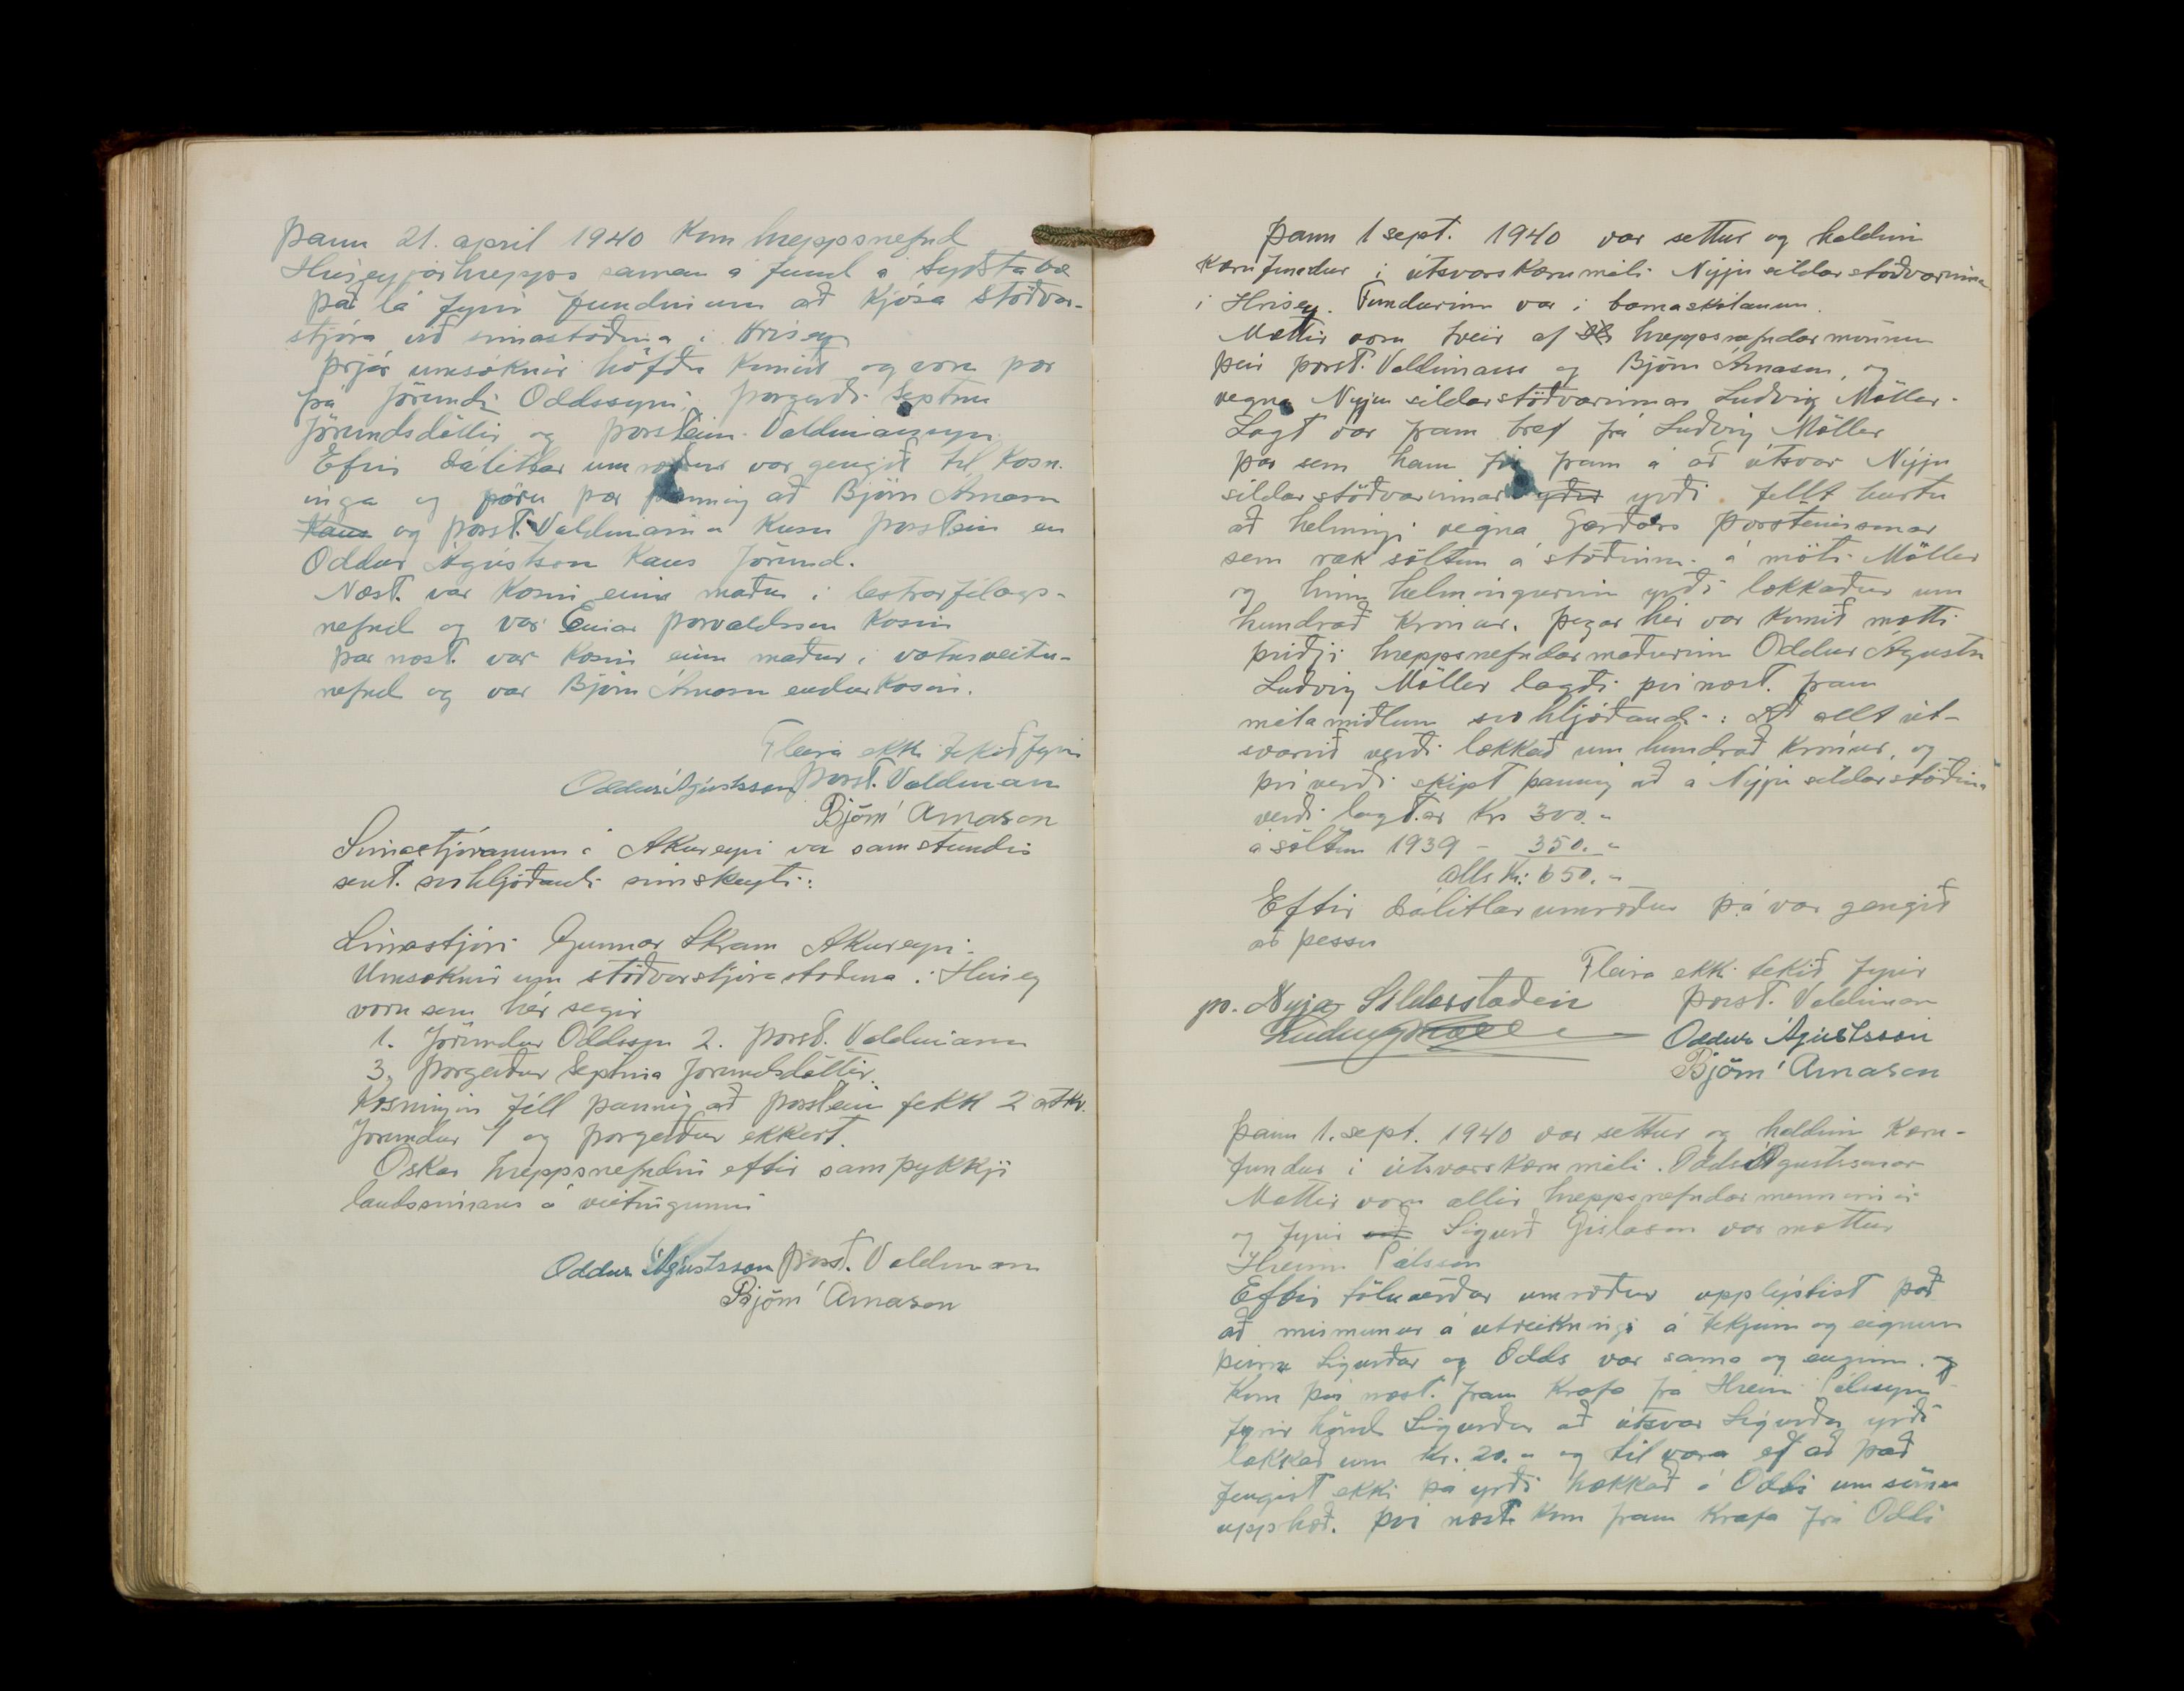 Þann 21. april 1940 kom hreppsnefnd
Hríseyjarhrepps saman á fund á Syðstabæ
það lá fyrir fundinum að kjósa stöðvar-
stjóra við símastöðina í Hrísey
Þrjár umsóknir höfðu komið og voru þær
frá Jörundi Oddssyni, Þorgerði Septínu
Jörundsdóttir og Þorsteini Valdimarssyni.
Eftir dálitlar umræður var gengið til kosn.
inga og fóru þær þannig að Björn Árnason
kaus og Þorst. Valdimarsson kusu Þorstein en
Oddur Ágústsson kaus Jörund.
Næst. var kosin einn maður i lestrarfélags-
nefnd og var Einar Þorvaldsson kosin
þar næst. var kosin einn maður i vatnsveitu-
nefnd og var Björn Árnason endurkosin.
Fleira ekki tekið fyrir
Oddur Ágústsson Þorst. Valdimarss
Björn Árnason
Símastjóranum á Akureyri var samstundis
sent. svohljóðandi símskeyti:
Símastjóri Gunnar Skram Akureyri.
Umsóknir um stöðvarstjórastöðuna í Hrísey
voru sem hér segir
1. Jörundur Oddsson 2. Þorst. Valdimarss
3. Þorgerður Septína Jörundsdóttir.
Kosningin féll þannig að Þorstein fekk 2 atkv.
Jörundur 1 og Þorgerður ekkert.
Óskar hreppsnefndin eftir samþykkji
landssímans á veitingunni
Oddur Ágústsson Þorst. Valdimarss
Björn Árnason
Þann 1 sept. 1940 var settur og haldin
kærufundur i útsvarskærumáli Nýju síldarstöðvarinna
i Hrísey. Fundurinn var i barnaskólanum.
Mættir voru tveir af hreppsnefndarmönnum
þeir Þorst. Valdimarss og Björn Árnason, og
vegna Nýju síldarstöðvarinnar Ludvig Möller.
Lagt var fram bréf frá Ludvig Möller
þar sem hann fór fram á að útsvar Nýju
síldarstöðvarinnar yðri yrði fellt burtu
að helmingi vegna Garðars Þorsteinssonar
sem rak söltun á stöðinni á móti Möller
og hinn helmingurinn yrði lækkaður um
hundrað krónur. Þegar hér var komið mætti
þriðji hreppsnefndarmaðurinn Oddur Ágústss
Ludvig Möller lagði því næst. fram
málamiðlun svohljóðandi: Að allt út-
svarið verði lækkað um hundrað krónur, og
því verði skipt þannig að á Nýju síldarstöðina
verði lagt. ar Kr 300.-
á söltun 1939 - 350.-
alls Kr. 650.-
Eftir dálitlar umræður þá var gengið
að þessu
Fleira ekki tekið fyrir
pr. Nyja Sildarstöðin Þorst. Valdimarss
Ludvig Möller Oddur Ágústsson
Björn Árnason
Þann 1. sept. 1940 var settur og haldin kæru-
fundur i útsvarskærumáli. Odds Ágústssonar
Mættir voru allir hreppsnefndarmennirnir
og fyrir við Sigurð Gíslason var mættur
Hreinn Pálsson
Eftir töluverðar umræður upplýstist það
að mismunur á útreikningi á tekjum og eignum
þeirra Sigurðar og Odds var sama og enginn. og
kom því næst. fram krafa frá Hrein Pálssyni
fyrir hönd Sigurðar að útsvar Sigurðar yrði
lækkað um Kr. 20.- og til vara ef að það
fengist ekki þá yrði hækkað á Oddi um sömu
upphæð. Því næst kom fram krafa frá Oddi